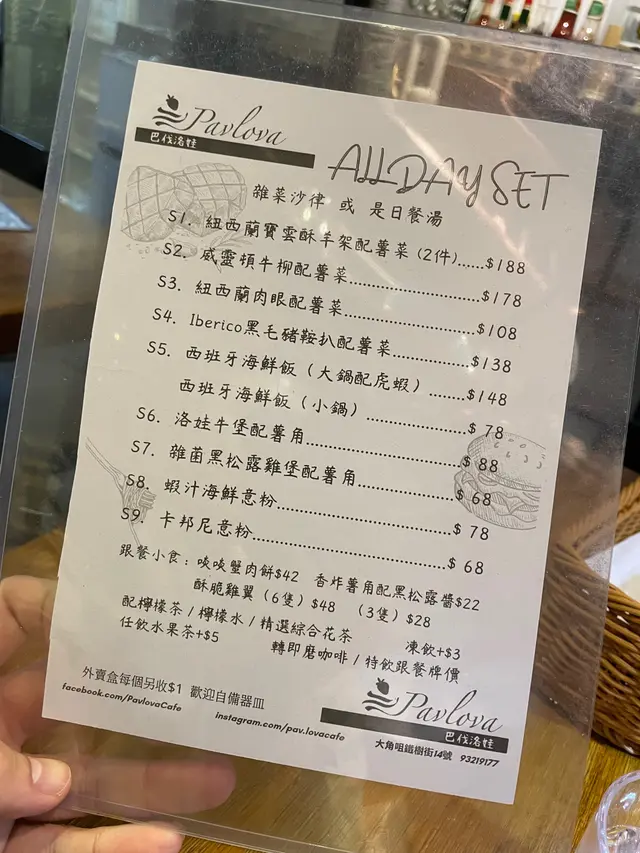 Pavlova
巴伐洛娃
ALL DAY SET
雜菜沙律 或 是日餐湯
S1. 紐西蘭寶雲酥羊架配薯菜 (2件)......$188
S2. 威靈頓牛柳配薯菜..............................$178
S3. 紐西蘭肉眼配薯菜..............................$108
S4. Iberico黑毛豬鞍扒配薯菜..................$138
S5. 西班牙海鮮飯（大鍋配虎蝦）............$148
西班牙海鮮飯（小鍋）..................$ 78
S6. 洛娃牛堡配薯角..............................$ 88
S7. 雜菌黑松露雞堡配薯角..................$ 68
S8. 蝦汁海鮮意粉..............................$ 78
S9. 卡邦尼意粉..............................$ 68
跟餐小食：啖啖蟹肉餅$42 香炸薯角配黑松露醬$22
酥脆雞翼（6隻）$48 （3隻）$28
配檸檬茶 / 檸檬水 / 精選綜合花茶 凍飲+$3
任飲水果茶+$5 轉即磨咖啡 / 特飲跟餐牌價
外賣盒每個另收$1 歡迎自備器皿
facebook.com/PavlovaCafe instagram.com/pav.lovacafe
Pavlova
巴伐洛娃
大角咀鐵樹街14號 93219177